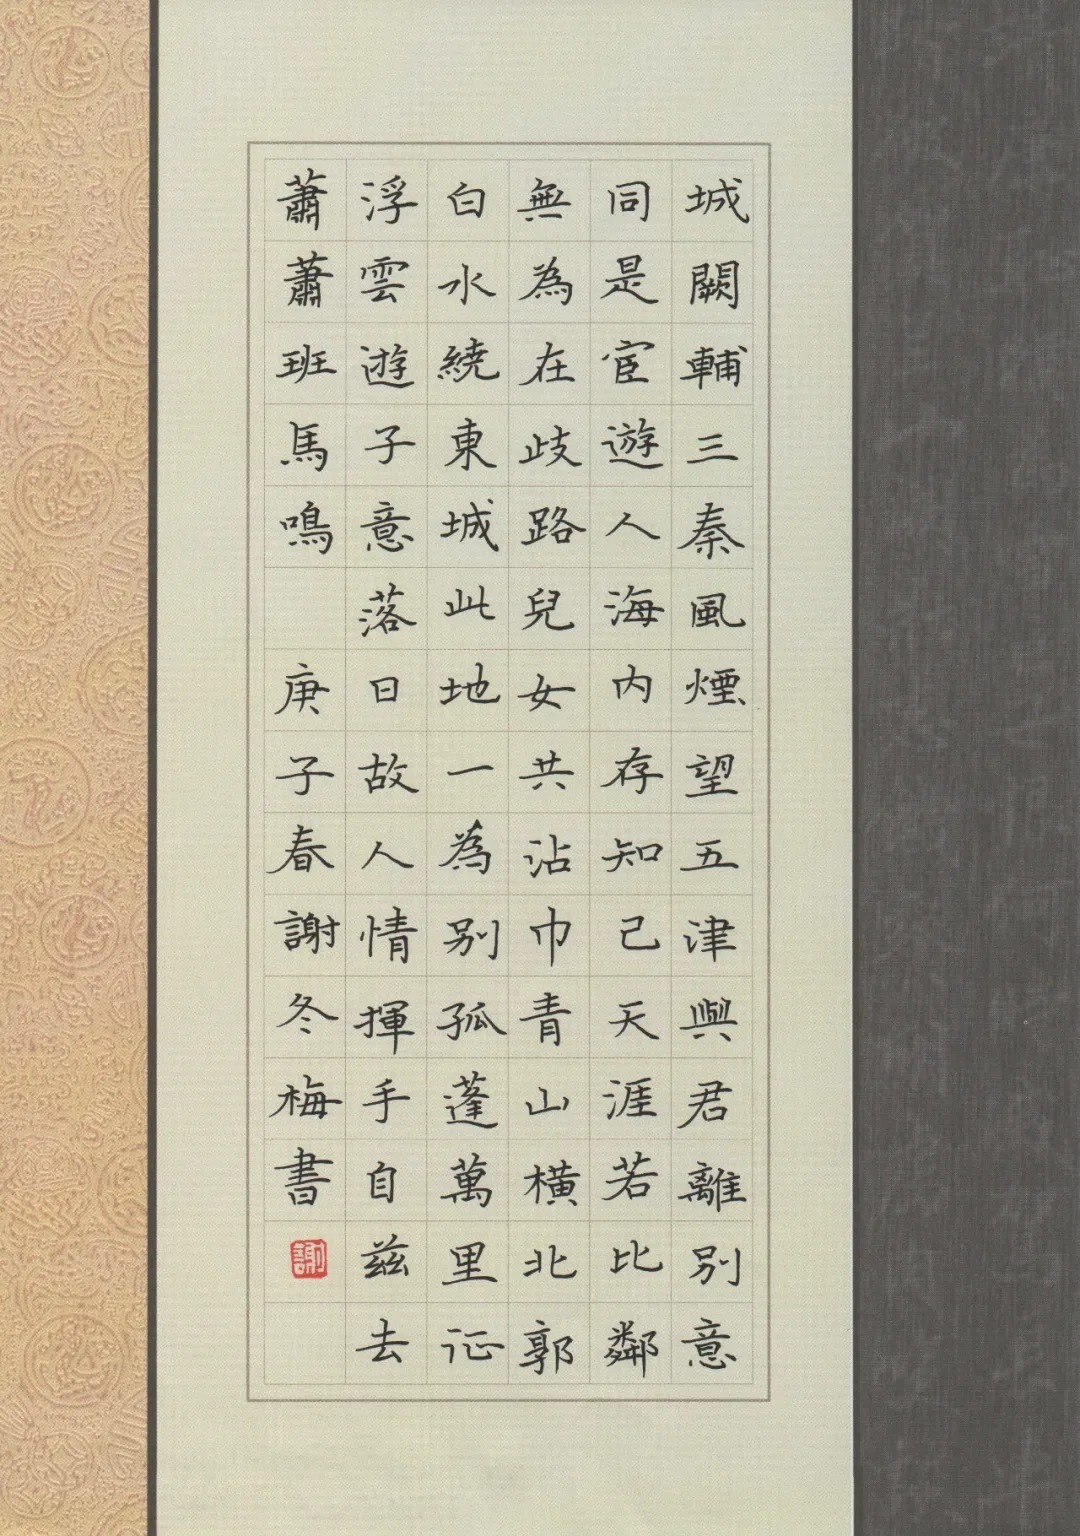 城闕輔三秦風煙望五津與君離别意
同是宦遊人海内存知己天涯若比鄰
無為在歧路兒女共沾巾青山横北郭
白水繞東城此地一為别孤蓬萬里征
浮雲遊子意落日故人情揮手自兹去
蕭蕭班馬鳴 庚子春謝冬梅書
謝